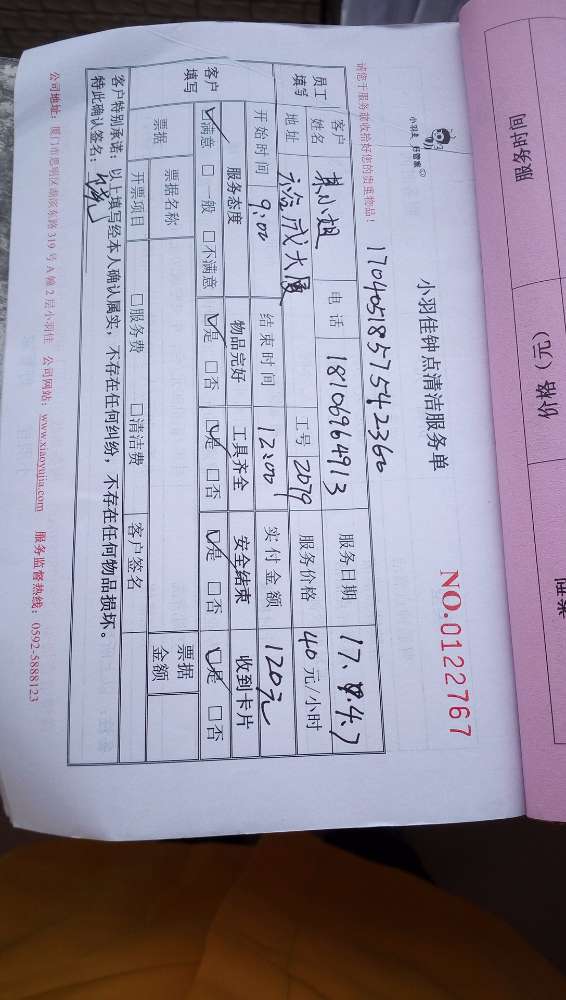 小羽佳 好管家
小羽佳钟点清洁服务单
NO.0122767
170405185754236
请您于服务前收拾好您的贵重物品!
员工填写 客户姓名 小姐 电话 18106964913 服务日期 17.4.7
地址 成大厦 工号 2079 服务价格 40元/小时
开始时间 9:00 结束时间 12:00 实付金额 120元
客户填写 服务态度 物品完好 工具齐全 安全结束 收到卡片
☑满意 □一般 □不满意 ☑是 □否 ☑是 □否 ☑是 □否 ☑是 □否
票据 票据名称 票据金额
开票项目 □服务费 □清洁费 客户签名
客户特别承诺:以上填写经本人确认属实,不存在任何纠纷,不存在任何物品损坏。
特此确认签名:
公司地址:厦门市思明区莲滨东路319号A幢2层小羽佳 公司网站:www.xiaoyujia.com 服务监督热线:0592-5888123
服务时间
价格(元)